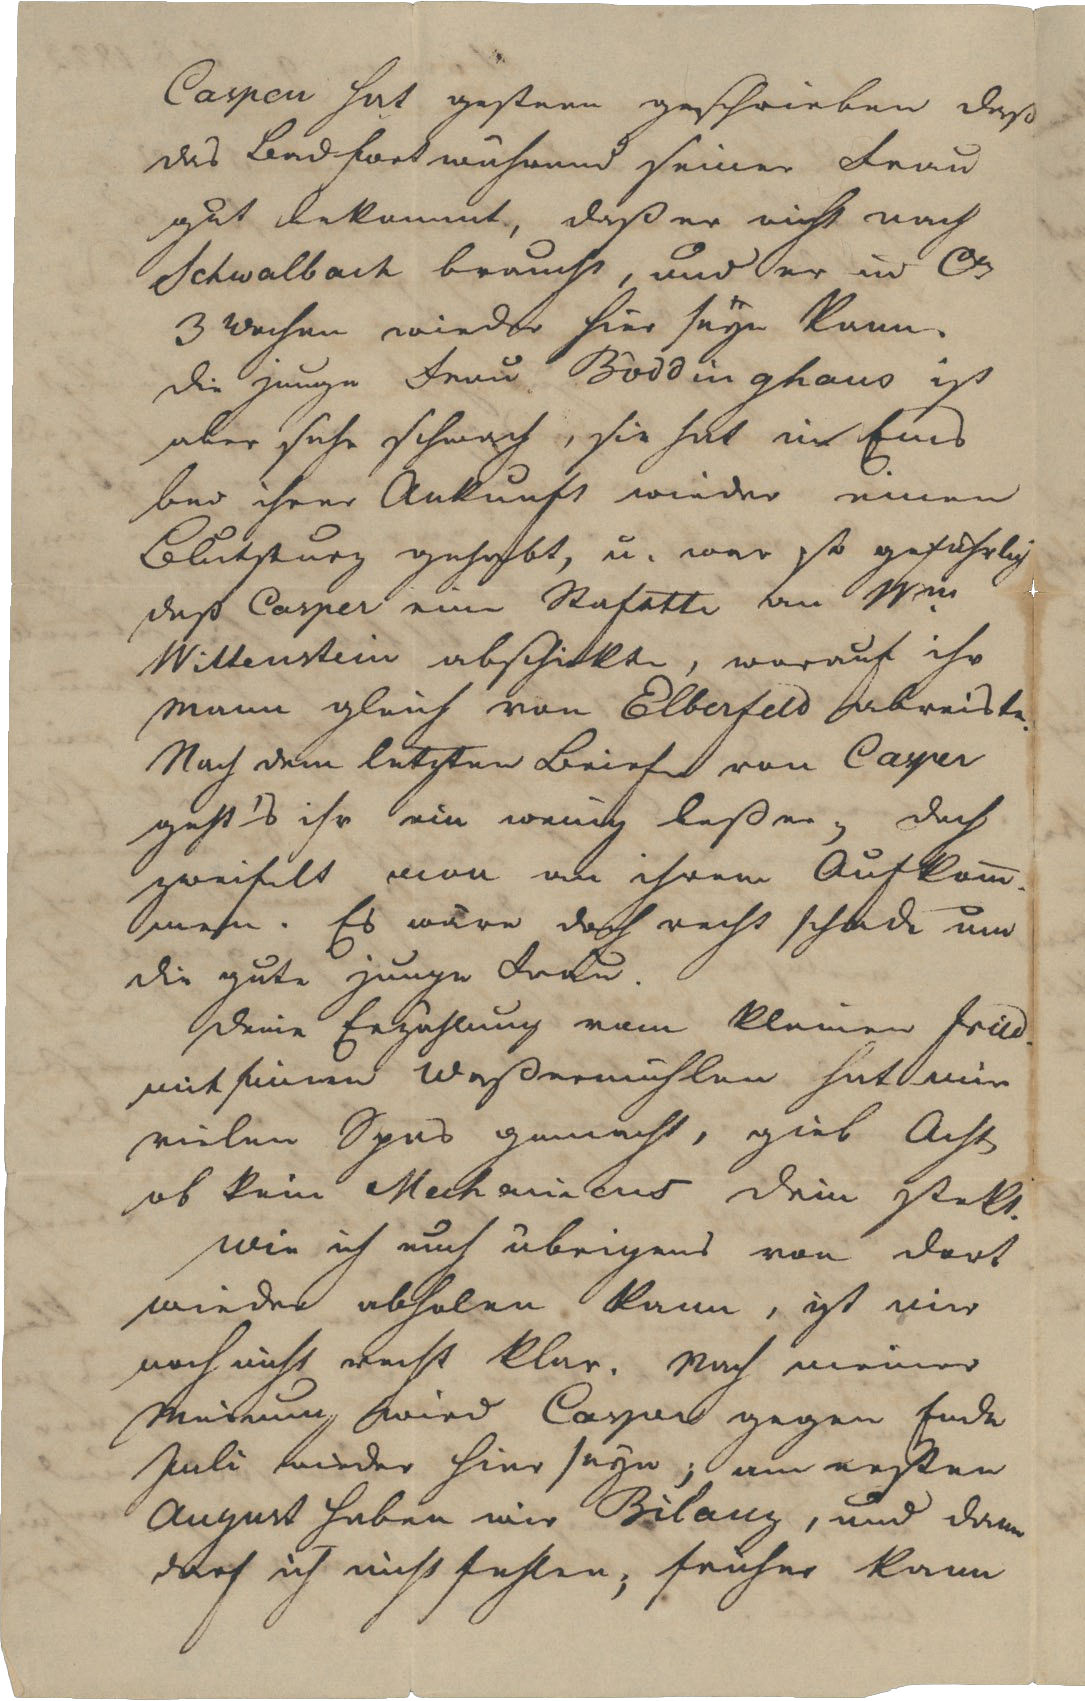 Casper hat gestern geschrieben daß
das Bad fortwährend seiner Frau
gut bekommt, daß er nicht nach
Schwalbach braucht, und er in Ca
3 Wochen wieder hier seÿn kann.
Die junge Frau Böddinghaus ist
aber sehr schwach, sie hat in Ems
bei ihrer Ankunft wieder einen
Blutsturz gehabt, u. war so gefährlich
daß Casper eine Stafette an Wm
Wittenstein abschickte, worauf ihr
Mann gleich von Elberfeld abreiste.
Nach dem letzten Briefe von Casper
geht's ihr ein wenig beßer; doch
zweifelt man an ihrem Aufkom̅-
men. Es wäre doch recht schade um
die gute junge Frau.
Deine Erzählung vom kleinen Fried.
mit seinen Waßermühlen hat mir
vielen Spas gemacht, gieb Acht
ob kein Mechanicus drin stekt.
Wie ich euch übrigens von dort
wieder abholen kann, ist mir
noch nicht recht klar. Nach meiner
Meinung wird Casper gegen Ende
Juli wieder hier seÿn; am ersten
August haben wir Bilanz, und dann
darf ich nicht fehlen; früher kann